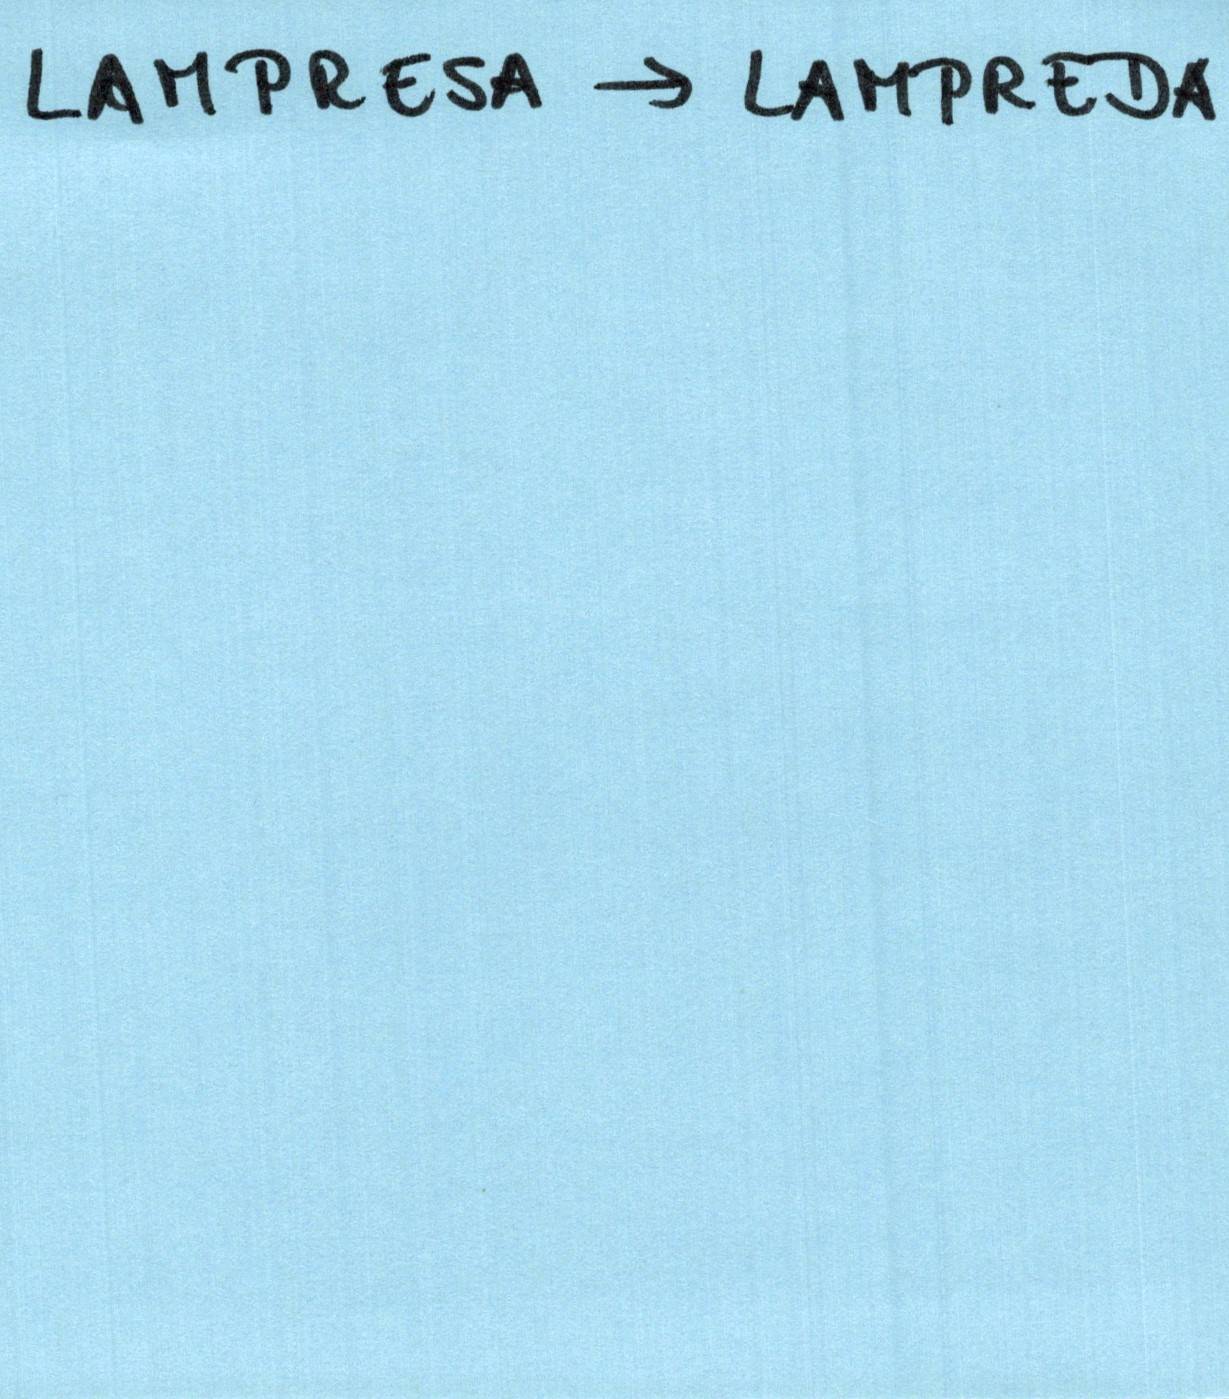 LAMPRESA → LAMPREDA